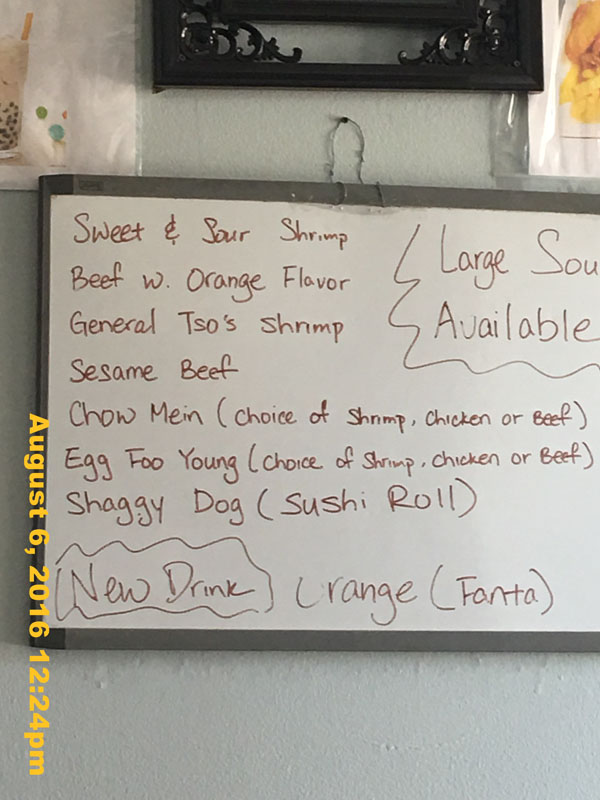 Sweet & Sour Shrimp
Beef w. Orange Flavor
General Tso's Shrimp
Sesame Beef
Chow Mein (choice of Shrimp, chicken or Beef)
Egg Foo Young (choice of Shrimp, chicken or Beef)
Shaggy Dog (Sushi Roll)
New Drink Orange (Fanta)
Large Sou
Available
August 6, 2016 12:24pm